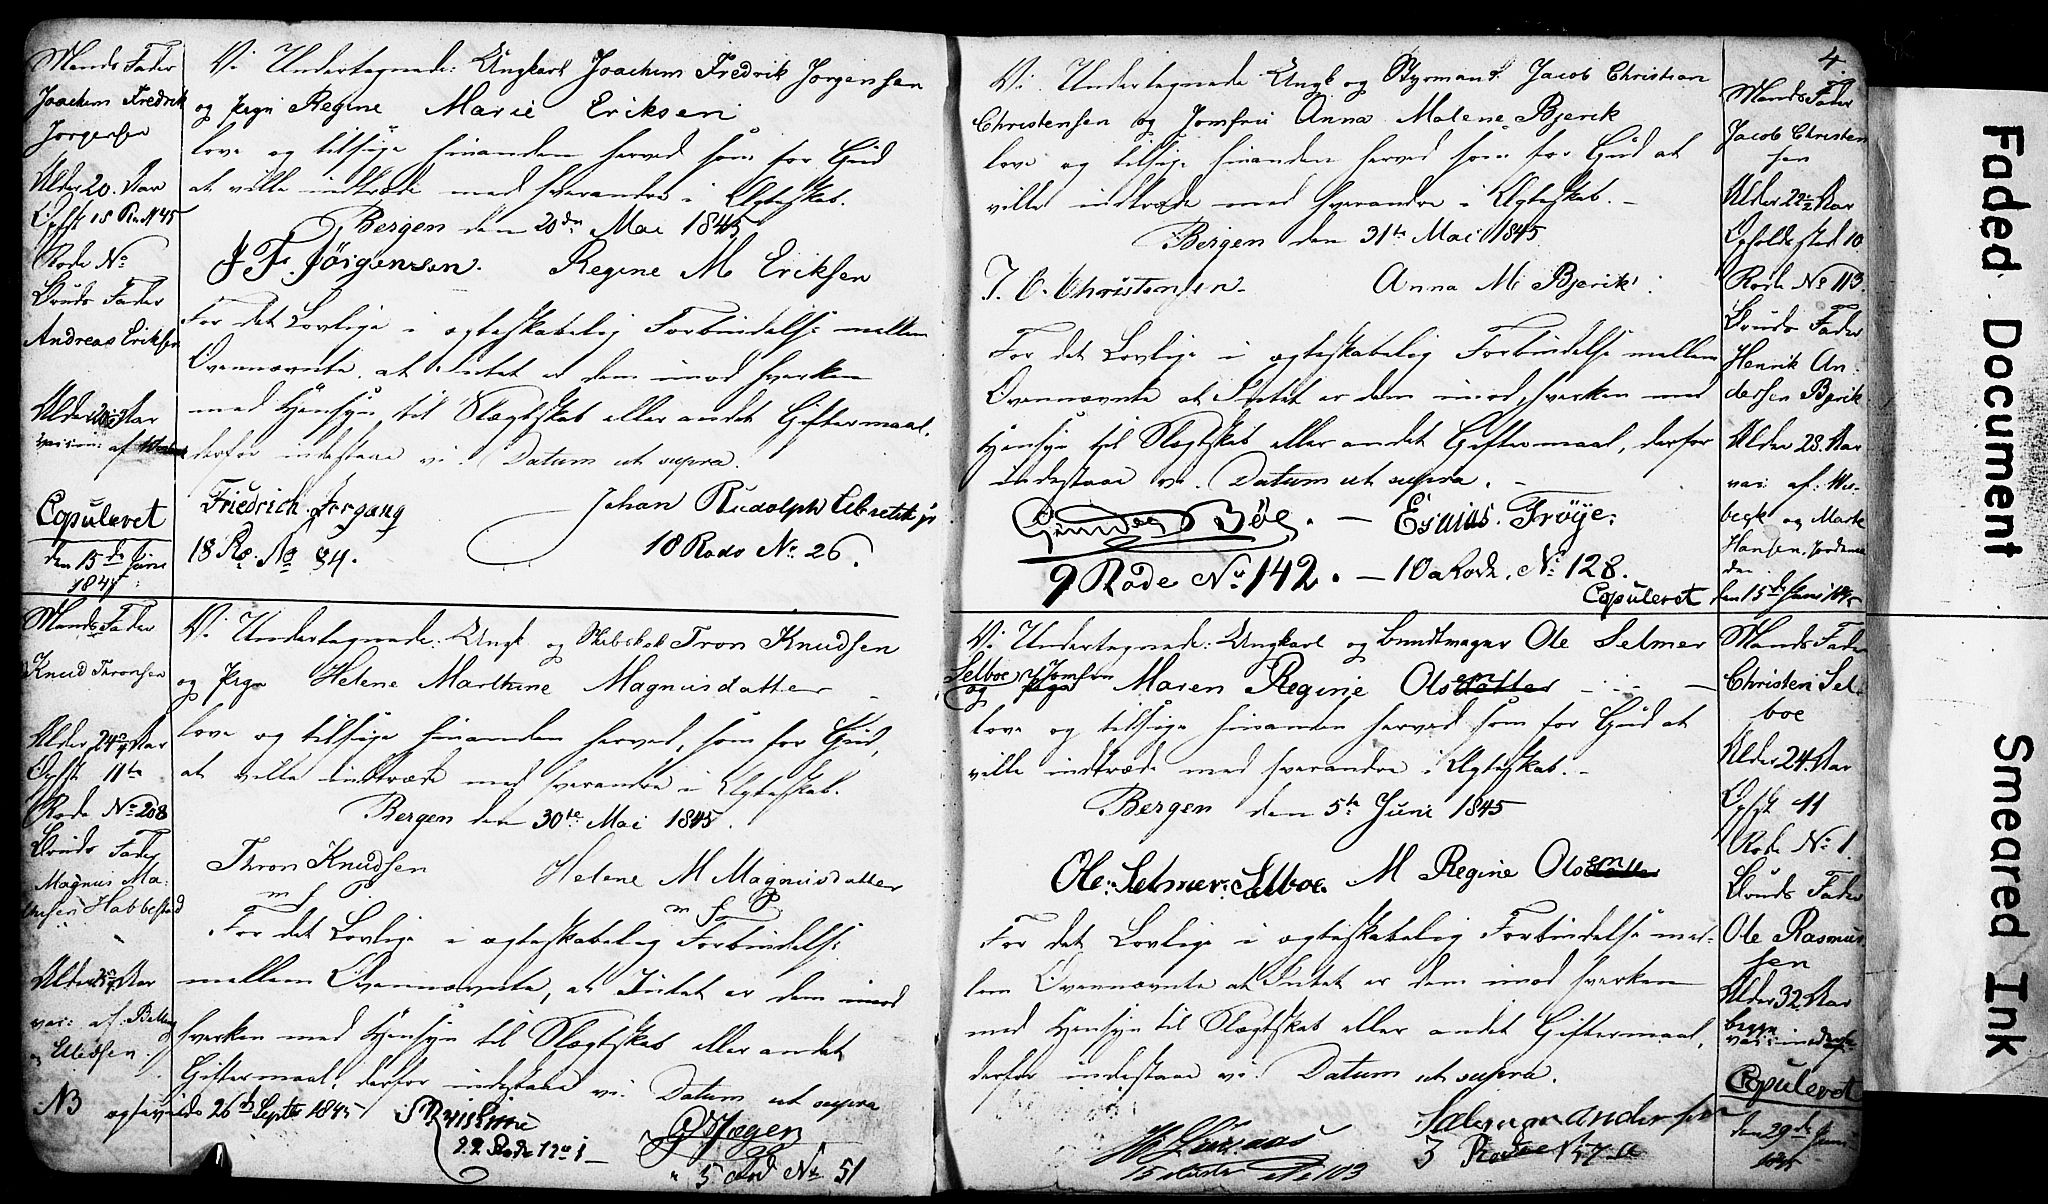 Mands Fader
Joachim Fredrik
Jorgensen
Alder 20 Aar
Rode No
Bruds Fader
Andreas Eriksen
Alder Aar
Copuleret
den 15de Juni
1845
Vi Undertegnede: Ungkarl Joachim Fredrik Jorgensen
og Pign Regine Marie Eriksen
love og tilsige hinanden herved som for Gud
at ville indtræde med hverandre i Ægteskab.
Bergen den 20de Mai 1845
J F. Jörgensen. Regine M Eriksen
For det Lovlige i ægteskabelig Forbindelse mellem
Ovennævnte, at Intet er dem imod hverken
med Hensyn til Slægtskab eller andet Giftermaal,
derfor indestaae vi. Datum ut supra.
Friedrich Johan Rudolph
18 Ro. No 84. 18 Rode No. 26.
Mands Fader
Knud Thronsen
Alder 24 Aar
Opst 11te
Rode No 208
Bruds Fader
Magnus Ma-
Habbestad
Alder Aar
vac: af
Vi Undertegnede: Ungk og Tron Knudsen
og Pign Helene Marthine Magnusdatter
love og tilsige hinanden herved, som for Gud,
at ville indtræde med hverandre i Ægteskab.
Bergen den 30te Mai 1845.
Thron Knudsen Helene M Magnusdatter
m f P m f P
For det Lovlige i ægteskabelig Forbindelse
mellem Ovennævnte, at Intet er dem imod
hverken med Hensyn til Slægtskab eller andet
Giftermaal, derfor indestaae vi. Datum ut supra
NB 26de Septbr 1845
22 Rode No 1
5 Rod No 51
4.
Vi Undertegnede Ungk og Styrmand Jacob Christian
Christensen og Jomfru Anna Malene Bjerik
love og tilsige hinanden herved som for Gud at
ville indtræde med hverandre i Ægteskab. -
Bergen den 31te Mai 1845
J. C. Christensen. Anna M Bjerik
For det Lovlige i ægteskabelig Forbindelse mellem
Ovennævnte at Intet er dem imod, hverken med
Hensyn til Slægtskab eller andet Giftermaal, derfor
indestaae vi. Datum ut supra. -
Böe. - Esaias Tröye.
9 Rode No 142. - 10 a Rode. No 128.
Copuleret
Mands Fader
Jacob Christen
sen
Alder 22 1/2 Aar
Opholdssted 10
Rode No 113.
Bruds Fader
Henrik An-
dersen Bjerik
Alder 23. Aar
vac: af: Wis-
beck og Marte
Hansen,
den 15de Juni 1845
Vi Undertegnede: Ungkarl og Bundtmager Ole Selmer
Selboe Jomfru
og Pige Maren Regine Olsdatter en
love og tilsige hinanden herved som for Gud at
ville indtræde med hverandre i Ægteskab. -
Bergen den 5te Juni 1845
Ole: Selmer: Selboe. M Regine Olsdatter en
For det Lovlige i ægteskabelig Forbindelse mel-
lem Ovennævnte at Intet er dem imod hverken
med Hensyn til Slægtskab eller andet Giftermaal,
derfor indestaae vi. Datum ut supra.
3 Rode
No 103
Mands Fader
Christen Sel-
boe
Alder 24 Aar
Opst 11
Rode No 1.
Bruds Fader
Ole Rasmus-
sen
Alder 32 Aar
begge
Copuleret
den 29de Juni
1845
Faded Document
Smeared Ink